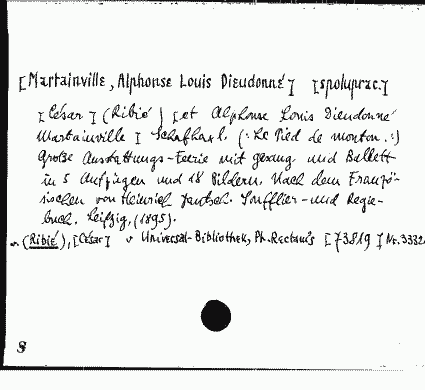 [Martainville, Alphonse Louis Dieudonné] [spoluprac.]
[César] (Ribié) [et Alphonse Louis Dieudonné
Martainville] Schafhaxl. (: Le Pied de mouton. :)
Große Ausstattungs-Feerie mit Gesang und Ballett
in 5 Aufzügen und 18 Bildern. Nach dem Franzö-
sischen von Heinrich Jantsch. Soufflier- und Regie-
buch. Leipzig, (1895).
(Ribié), [César] v Universal-Bibliothek, Ph. Reclam's [73819] Nr. 3332
8